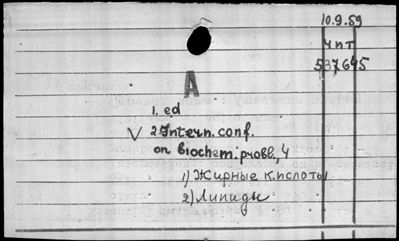 10.9.59
Чпт
537645
A
1. ed
V 2. Intern. conf.
on biochem. probl., 4
1) Жирные кислоты
2) Липиды